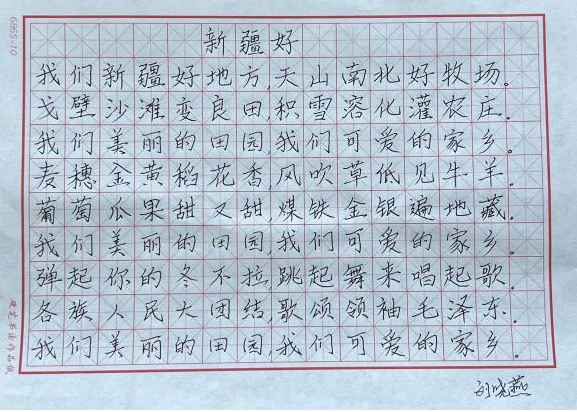 6865-10
新疆好
我们新疆好地方,天山南北好牧场。
戈壁沙滩变良田,积雪溶化灌农庄。
我们美丽的田园,我们可爱的家乡。
麦穗金黄稻花香,风吹草低见牛羊。
葡萄瓜果甜又甜,煤铁金银遍地藏。
我们美丽的田园,我们可爱的家乡。
弹起你的冬不拉,跳起舞来唱起歌。
各族人民大团结,歌颂领袖毛泽东。
我们美丽的田园,我们可爱的家乡。
硬笔书法作品纸
刘晓燕